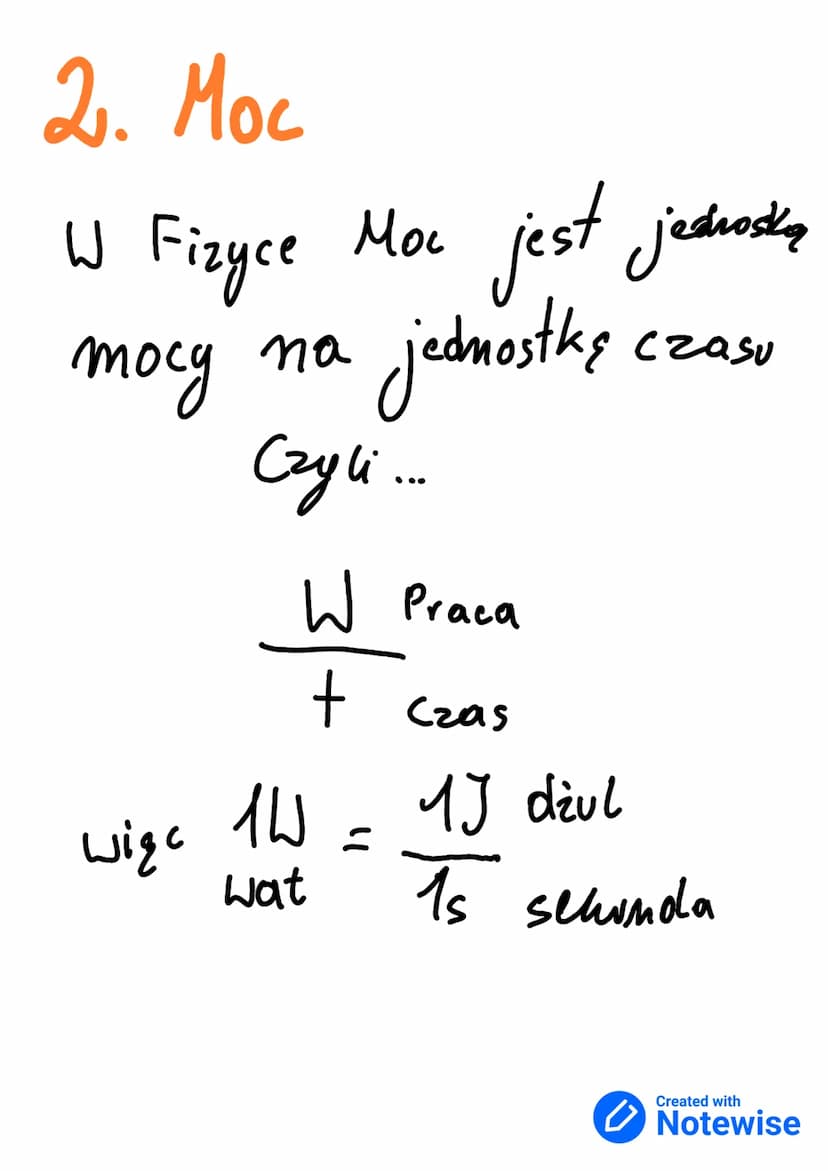 2. Moc
W Fizyce Moc jest jednostką
mocy na jednostkę czasu
Czyli...
W Praca
t Czas
więc 1W = 1J dżul
wat 1s sekunda
Created with
Notewise